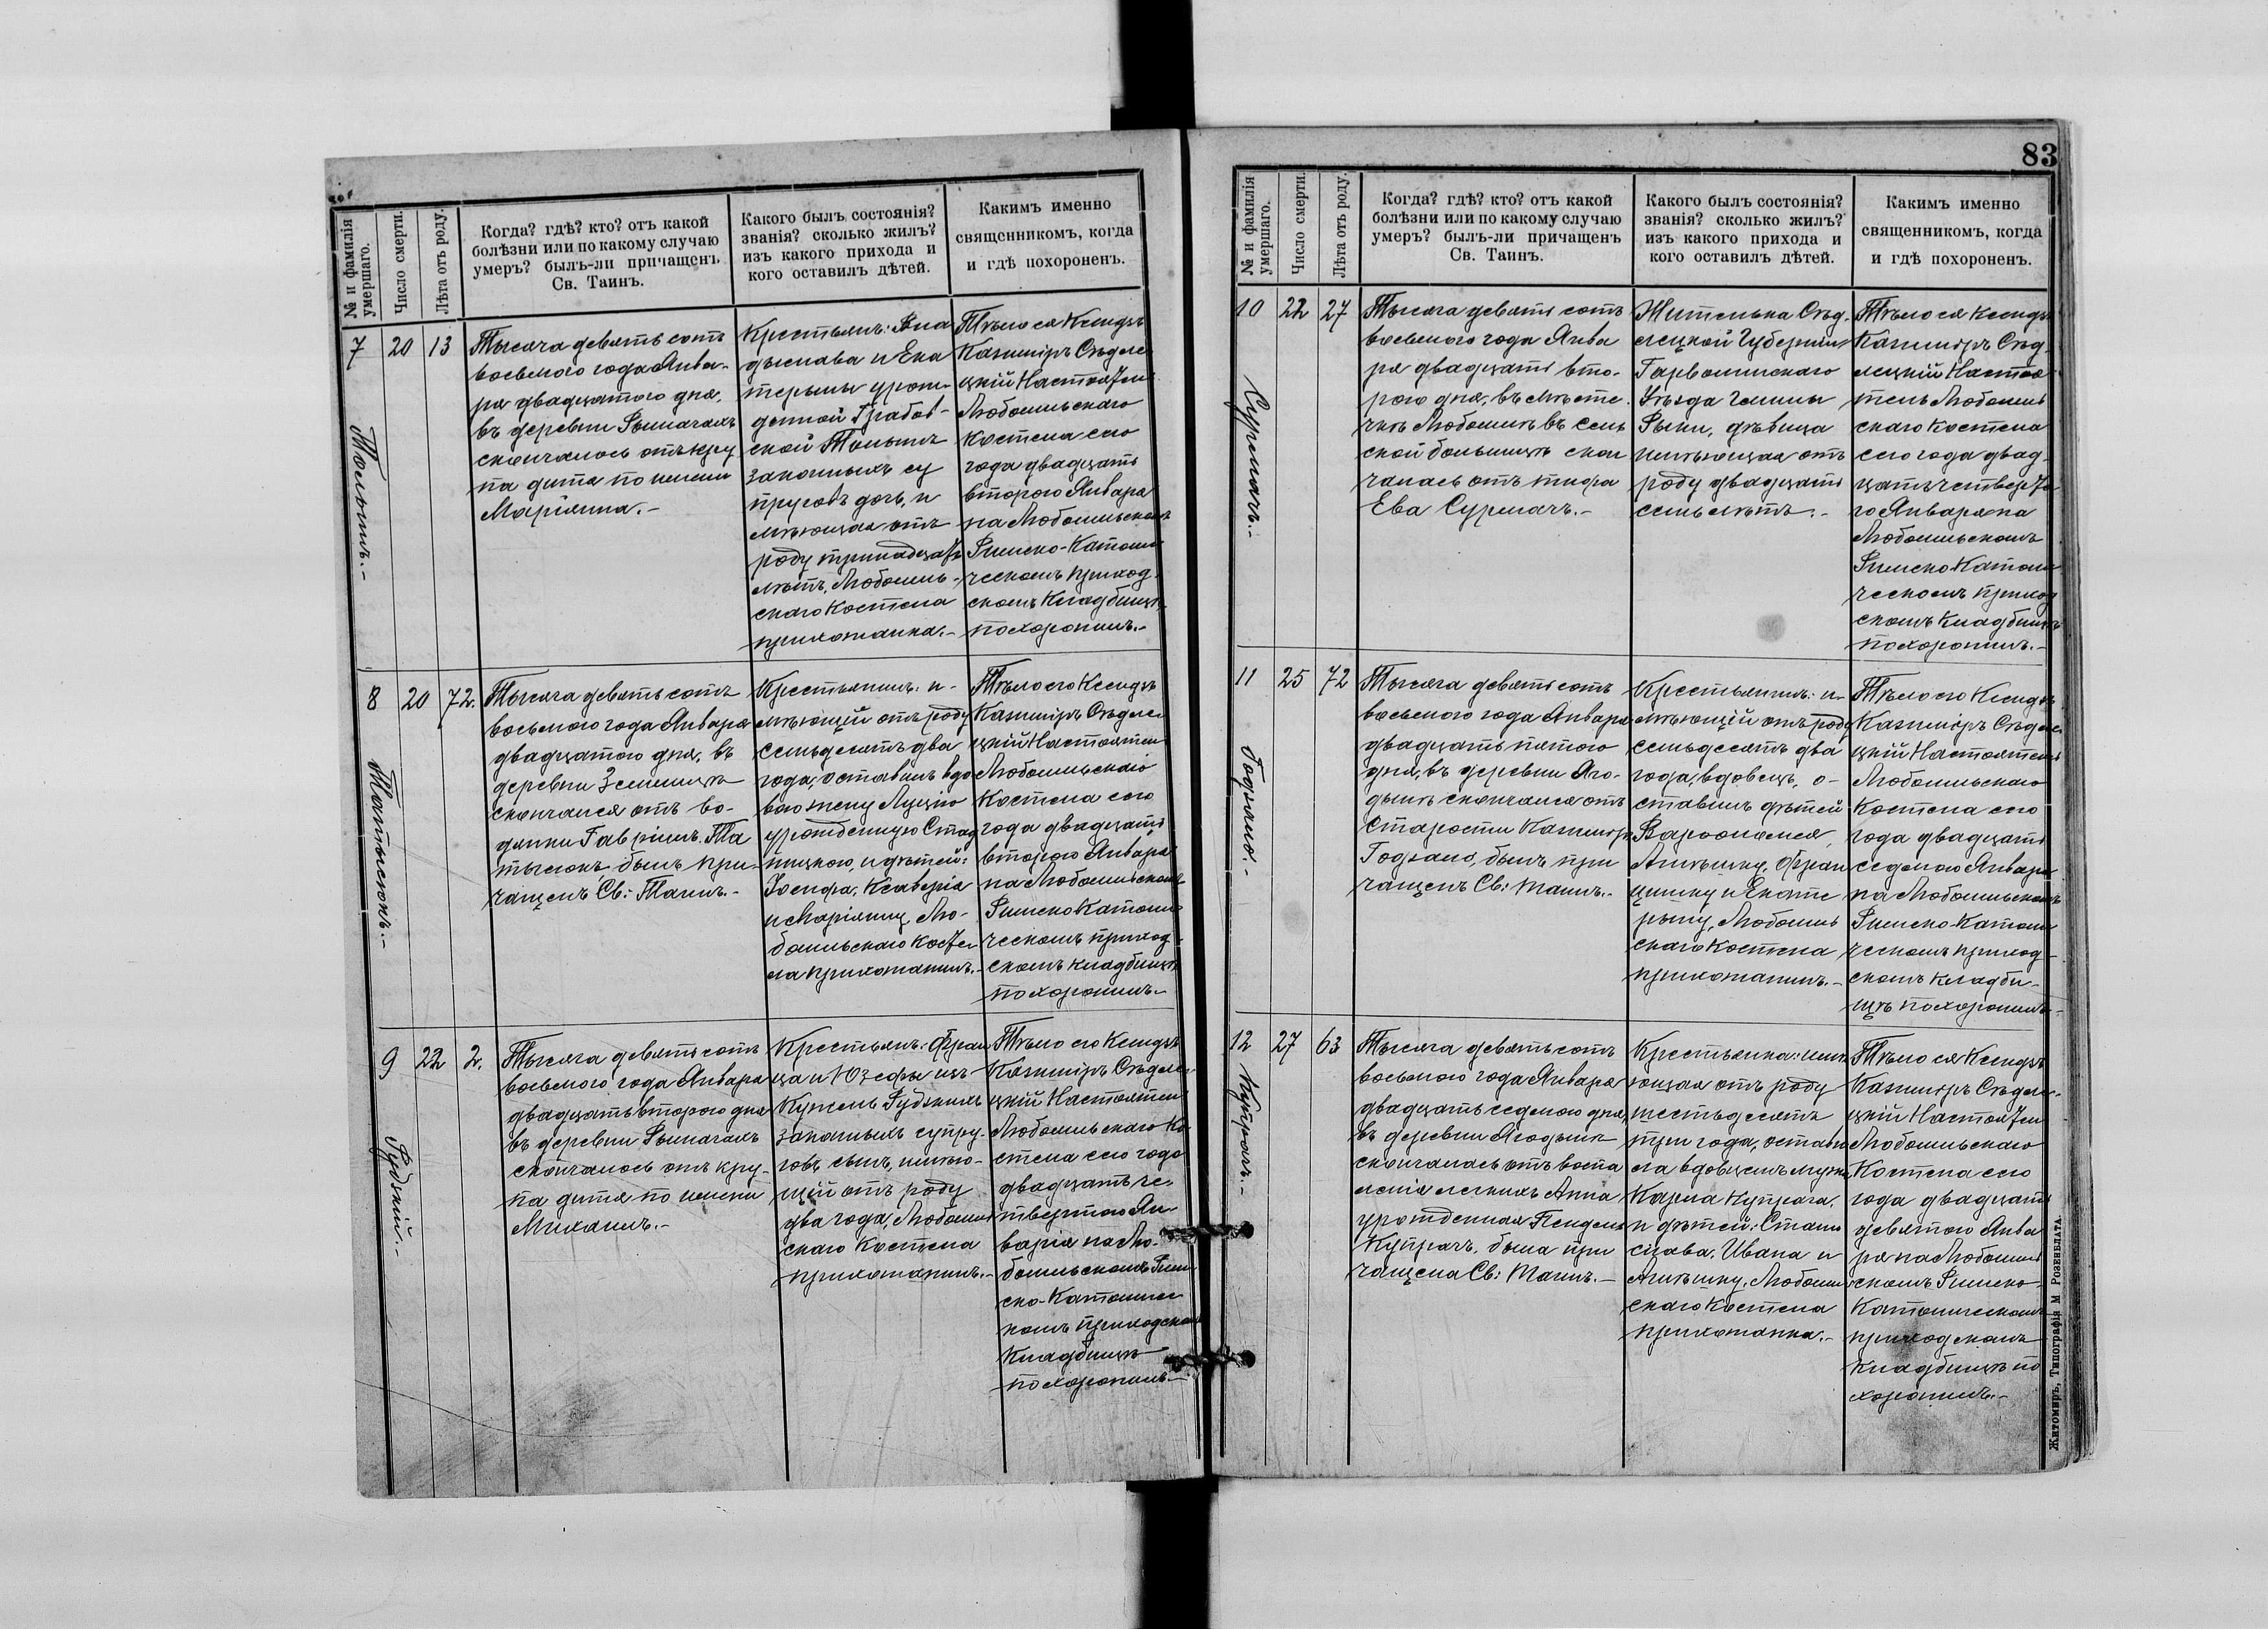 № и фамилія умершаго.
Число смерти.
Лѣта отъ роду.
Когда? гдѣ? кто? отъ какой
болѣзни или по какому случаю
умеръ? былъ-ли причащенъ
Св. Таинъ.
Какого былъ состоянія?
званія? сколько жилъ?
изъ какого прихода и
кого оставилъ дѣтей.
Какимъ именно
священникомъ, когда
и гдѣ похороненъ.
7
20
13
Тысяча девятьсотъ
восьмого года Янва-
ря двадцатого дня,
въ деревни Рымачахъ
скончалось отъ кру
па дитя по имени
Маріянна.-
Крестьянъ: Вла
дыслава и Ека
терыны урож-
денной Грабов-
ской
законныхъ су
пруговъ дочь, и
мѣющая отъ
роду тринадцать
лѣтъ, Любомль-
скаго Костела
прихожанка.-
Тѣло ея Ксендзъ
Казиміръ Сѣдле
цкій Настоятель
Любомльскаго
Костела сего
года двадцать
второго Января
на Любомльскомъ
Римско-Католи
ческомъ приход
скомъ Кладбищѣ
похоронилъ.-
8
20
72.
Тысяча девятьсотъ
восьмого года Января
двадцатого дня, въ
деревни Землицѣ
скончался отъ во-
дянки Гавріилъ Ма
тысюкъ, былъ при-
чащенъ Св: Таинъ.-
Матысюкъ.-
Крестьянинъ: и-
мѣющій отъ роду
семьдесятъ два
года, оставилъ вдо
вою жену Луцію
урожденную
и дѣтей:
Іосифа, Ксаверія
и Маріянну, Лю-
бомльскаго Косте
ла прихожанинъ.-
Тѣло его Ксендзъ
Казиміръ Сѣдле
цкій Настоятель
Любомльскаго
Костела сего
года двадцать
второго Января
на Любомльскомъ
Римско Католи
ческомъ приход
скомъ кладбищѣ
похоронилъ.-
9
22
2.
Рудзкій.-
Тысяча девятьсотъ
восьмого года Января
двадцать второго дня
въ деревни Рымачахъ
скончалось отъ кру-
па дитя по имени
Михаилъ.-
Крестьянъ: Фран
ца и Юзефы изъ
Кужель Рудзкихъ
законныхъ супру-
говъ сынъ, имѣю-
щій отъ роду
два года, Любомль
скаго Костела
прихожанинъ.-
Тѣло его Ксендзъ
Казиміръ Сѣдле
цкій Настоятель
Любомльскаго Ко
стела сего года
двадцать че-
твертого Ян-
варя на Лю-
бомльскомъ Рим
ско-Католичес
комъ приходскомъ
Кладбищѣ
похоронилъ.-
83
№ и фамилія умершаго.
Число смерти.
Лѣта отъ роду.
Когда? гдѣ? кто? отъ какой
болѣзни или по какому случаю
умеръ? былъ-ли причащенъ
Св. Таинъ.
Какого былъ состоянія?
званія? сколько жилъ?
изъ какого прихода и
кого оставилъ дѣтей.
Какимъ именно
священникомъ, когда
и гдѣ похороненъ.
10
22
27
Сурмачъ.-
Тысяча девятьсотъ
восьмого года Янва
ря двадцать вто-
рого дня, въ мѣсте
чкѣ Любомлѣ въ сель
ской больницѣ скон
чалась отъ тифа
Ева Сурмачъ.-
Жителька Сѣд
лецкой Губерніи
Гарволинскаго
Уѣзда Гмины
дѣвица
имѣющая отъ
роду двадцать
семь лѣтъ.-
Тѣло ея Ксендзъ
Казиміръ Сѣд
лецкій Настоя
тель Любомль
скаго Костела
сего года двад
цать четверта
го Января на
Любомльскомъ
Римско Католи
ческомъ приход
скомъ Кладбищѣ
похоронилъ.-
11
25
72
Годзало.-
Тысяча девятьсотъ
восьмого года Января
двадцать пятого
дня, въ деревни Яго-
дынѣ скончался отъ
старости Казиміръ
Годзало, былъ при
чащенъ Св: Таинъ.-
Крестьянинъ: и-
мѣющій отъ роду
семьдесятъ два
года, вдовецъ, о-
ставилъ дѣтей
Варфоломея,
Агнѣшку, Фран
цишку и Екате
рыну, Любомль
скаго Костела
прихожанинъ.-
Тѣло его Ксендзъ
Казиміръ Сѣдле
цкій Настоятель
Любомльскаго
Костела сего
года двадцать
седмого Января
на Любомльскомъ
Римско-Католи
ческомъ приход
скомъ кладби-
щѣ похоронилъ.-
12
27
63
Купрачъ.-
Тысяча девятьсотъ
восьмого года Января
двадцать седмого дня,
въ деревни Ягодынѣ
скончалась отъ воспа
ленія легкихъ Анна
урожденная
Купрачъ, была при
чащена Св: Таинъ.-
Крестьянка: имѣ
ющая отъ роду
шестьдесятъ
три года, остави
ла вдовцемъ мужа
Карла Купрача,
и дѣтей: Стани
слава, Ивана и
Агнѣшку, Любомль
скаго Костела
прихожанка.-
Тѣло ея Ксендзъ
Казиміръ Сѣдле
цкій Настоятель
Любомльскаго
Костела сего
года двадцать
девятого Янва
ря на Любомль
скомъ Римско-
Католическомъ
приходскомъ
Кладбищѣ по
хоронилъ.-
Житомиръ, Типографія М Розенблата.